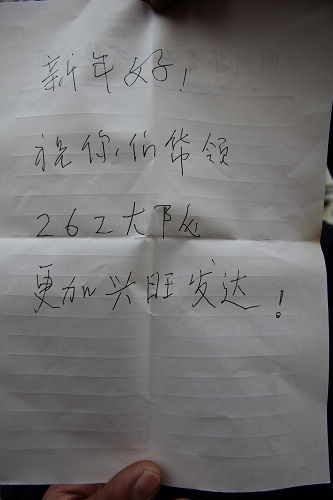 新年好！
祝你们带领
262大队
更加兴旺发达！